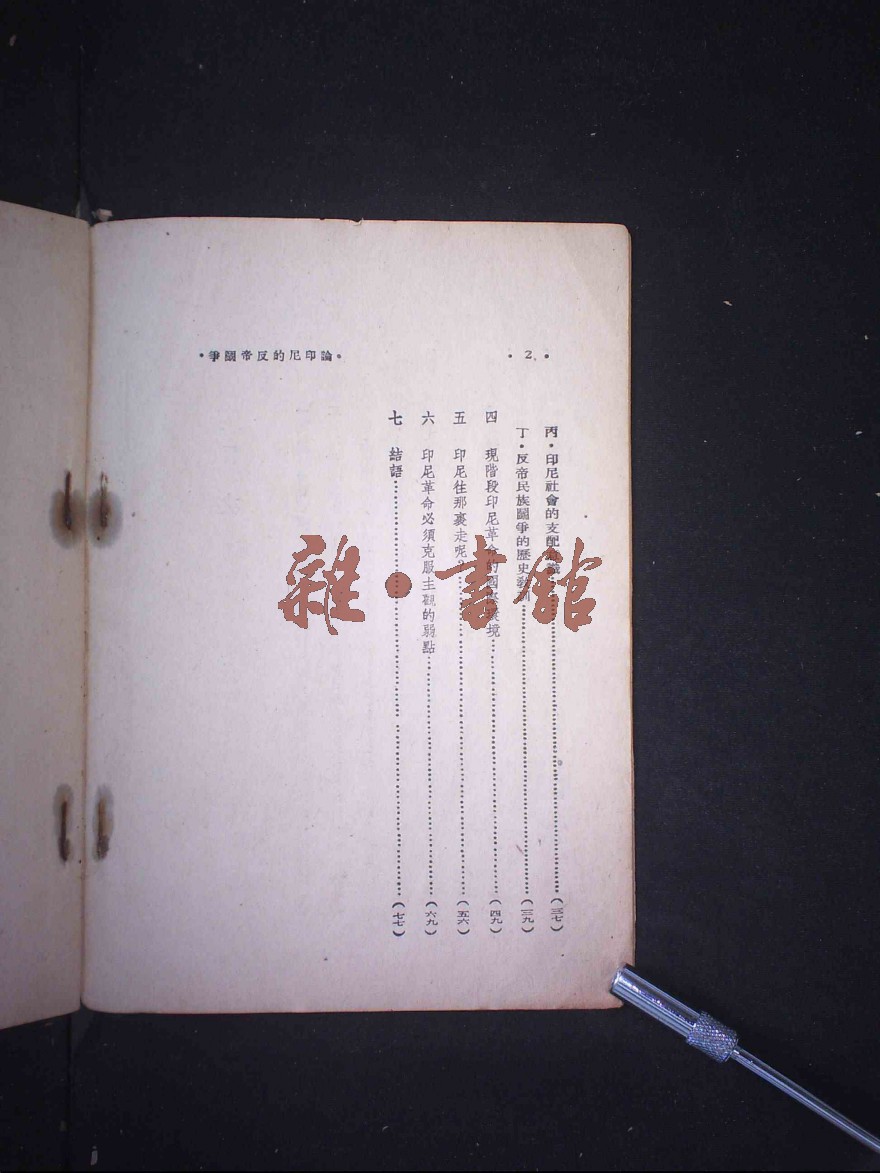 •爭鬪帝反的尼印論•
• 2 •
丙•印尼社會的支配意識……（三七）
丁•反帝民族鬪爭的歷史敎訓……（三九）
四 現階段印尼革命的國際環境……（四九）
五 印尼往那裏走呢？……（五六）
六 印尼革命必須克服主觀的弱點……（六九）
七 結語……（七七）
雜•書館